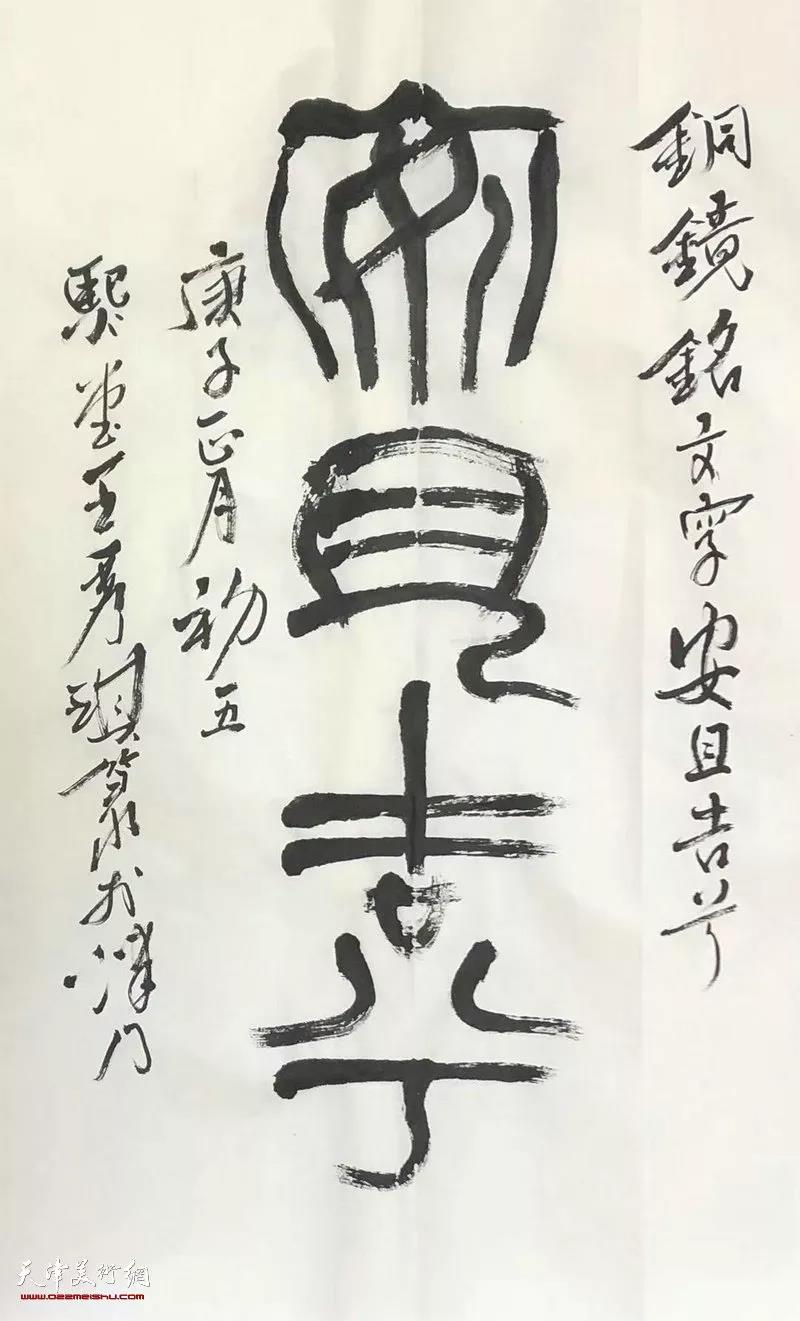 銅鏡銘文字安且吉兮
安且吉兮
庚子正月初五
堂王琪篆於津门
天津美术網
www.022meishu.com